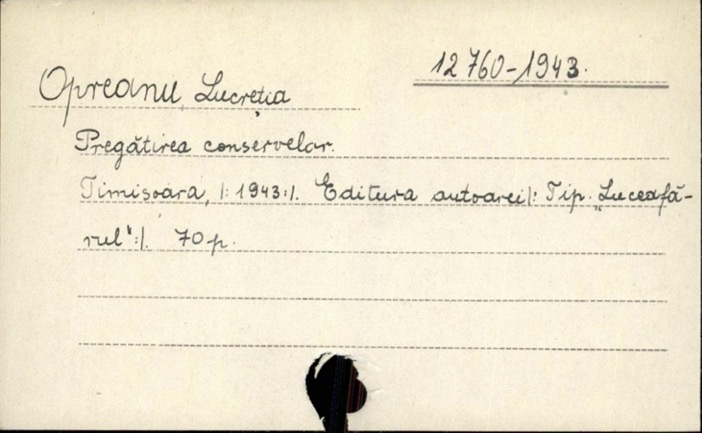 12760-1943.
Opreanu, Lucreția
Pregătirea conservelor.
Timișoara, /: 1943:/. Editura autoarei/: Tip. „Luceafă-
rul":/. 70 p.